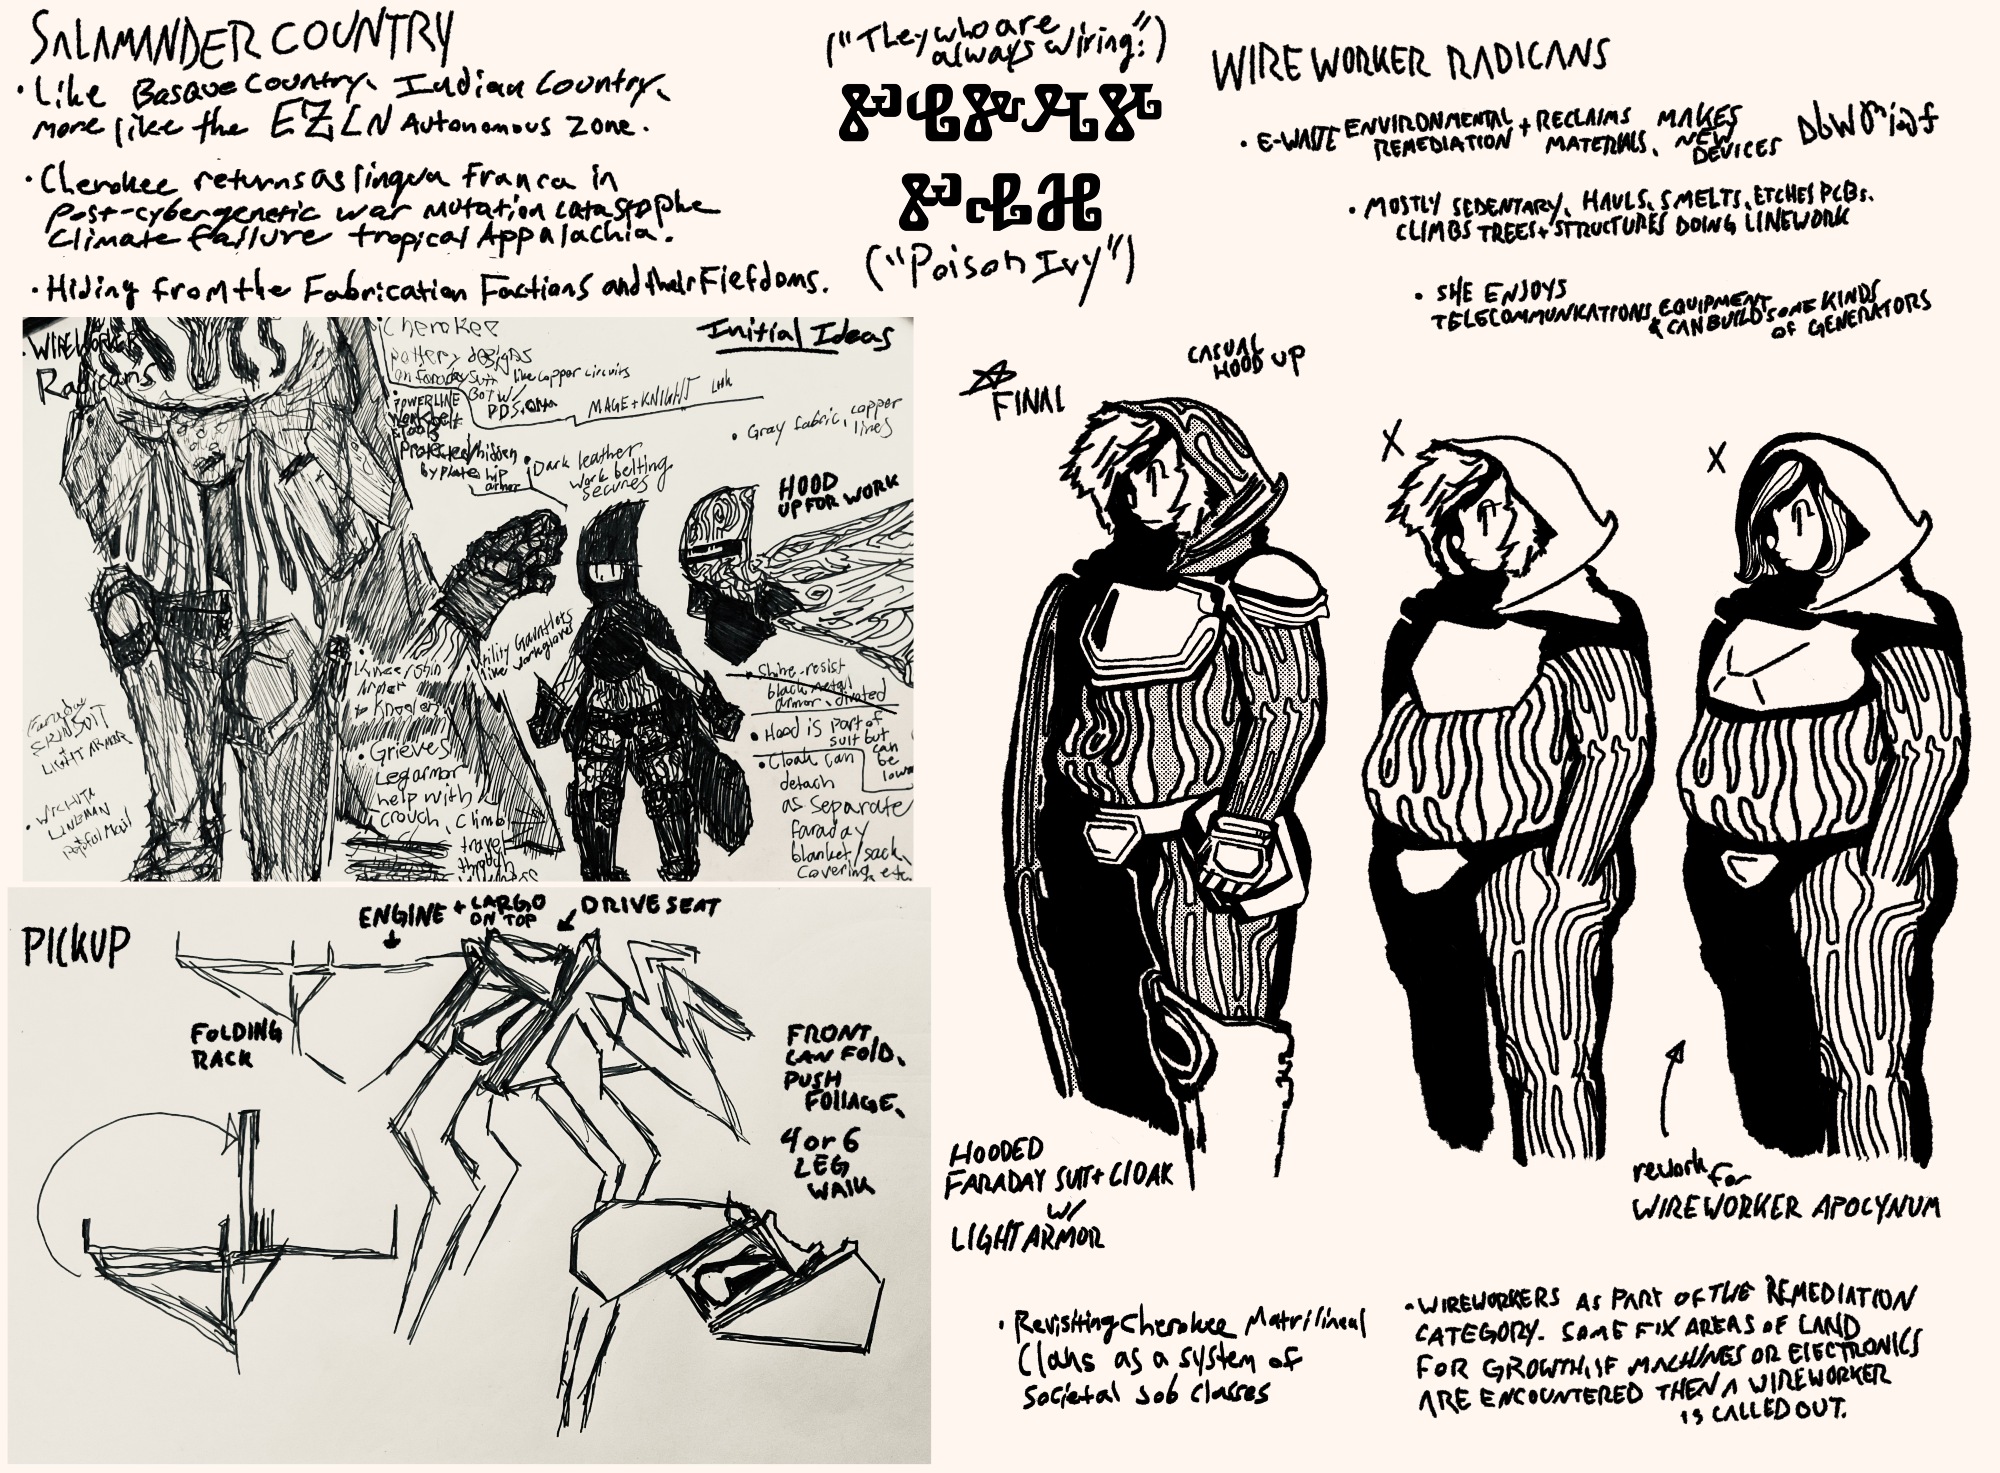 SALAMANDER COUNTRY
• Like Basque Country, Indian Country,
more like the EZLN Autonomous Zone.
• Cherokee returns as lingua franca in
post-cybergenetic war mutation catastrophe
climate failure tropical Appalachia.
• Hiding from the Fabrication Factions and their Fiefdoms.
("They who are
always wiring:")
("Poison Ivy")
WIREWORKER RADICANS
• E-WASTE ENVIRONMENTAL
REMEDIATION + RECLAIMS
MATERIALS, MAKES
NEW
DEVICES
• MOSTLY SEDENTARY, HAULS, SMELTS, ETCHES PCBs.
CLIMBS TREES + STRUCTURES DOING LINEWORK
• SHE ENJOYS
TELECOMMUNICATIONS EQUIPMENT
& CAN BUILD SOME KINDS
OF GENERATORS
• WIREWORKER
Radicans
Cherokee
pottery designs
on faraday suit like copper circuits
Initial Ideas
BOTW/
MAGE + KNIGHT
POWERLINE
work belt
& tools
protected/hidden
by plate hip
armor
• Dark leather
work belting
secures
• Gray fabric, copper
lines
HOOD
UP FOR WORK
Utility Gauntlets
like workgloves
Knee/shin
Armor
• Grieves
Leg armor
help with
crouch, climb
travel
through
Faraday
SKINSUIT
+
LIGHT ARMOR
• WICHITA
LINEMAN
• Shine-resist
black metal
armor
• Hood is part of
suit but
can
be
• Cloak can
detach
as separate
faraday
blanket/sack,
covering, etc.
PICKUP
ENGINE + CARGO
ON TOP
DRIVE SEAT
FOLDING
RACK
FRONT
CAN FOLD,
PUSH
FOLIAGE,
4 or 6
LEG
WALK
FINAL
CASUAL
HOOD UP
X
X
HOODED
FARADAY SUIT + CLOAK
w/
LIGHT ARMOR
rework for
WIREWORKER APOCYNUM
• Revisiting Cherokee Matrilineal
Clans as a system of
societal job classes
• WIREWORKERS AS PART OF THE REMEDIATION
CATEGORY. SOME FIX AREAS OF LAND
FOR GROWTH, IF MACHINES OR ELECTRONICS
ARE ENCOUNTERED THEN A WIREWORKER
IS CALLED OUT.